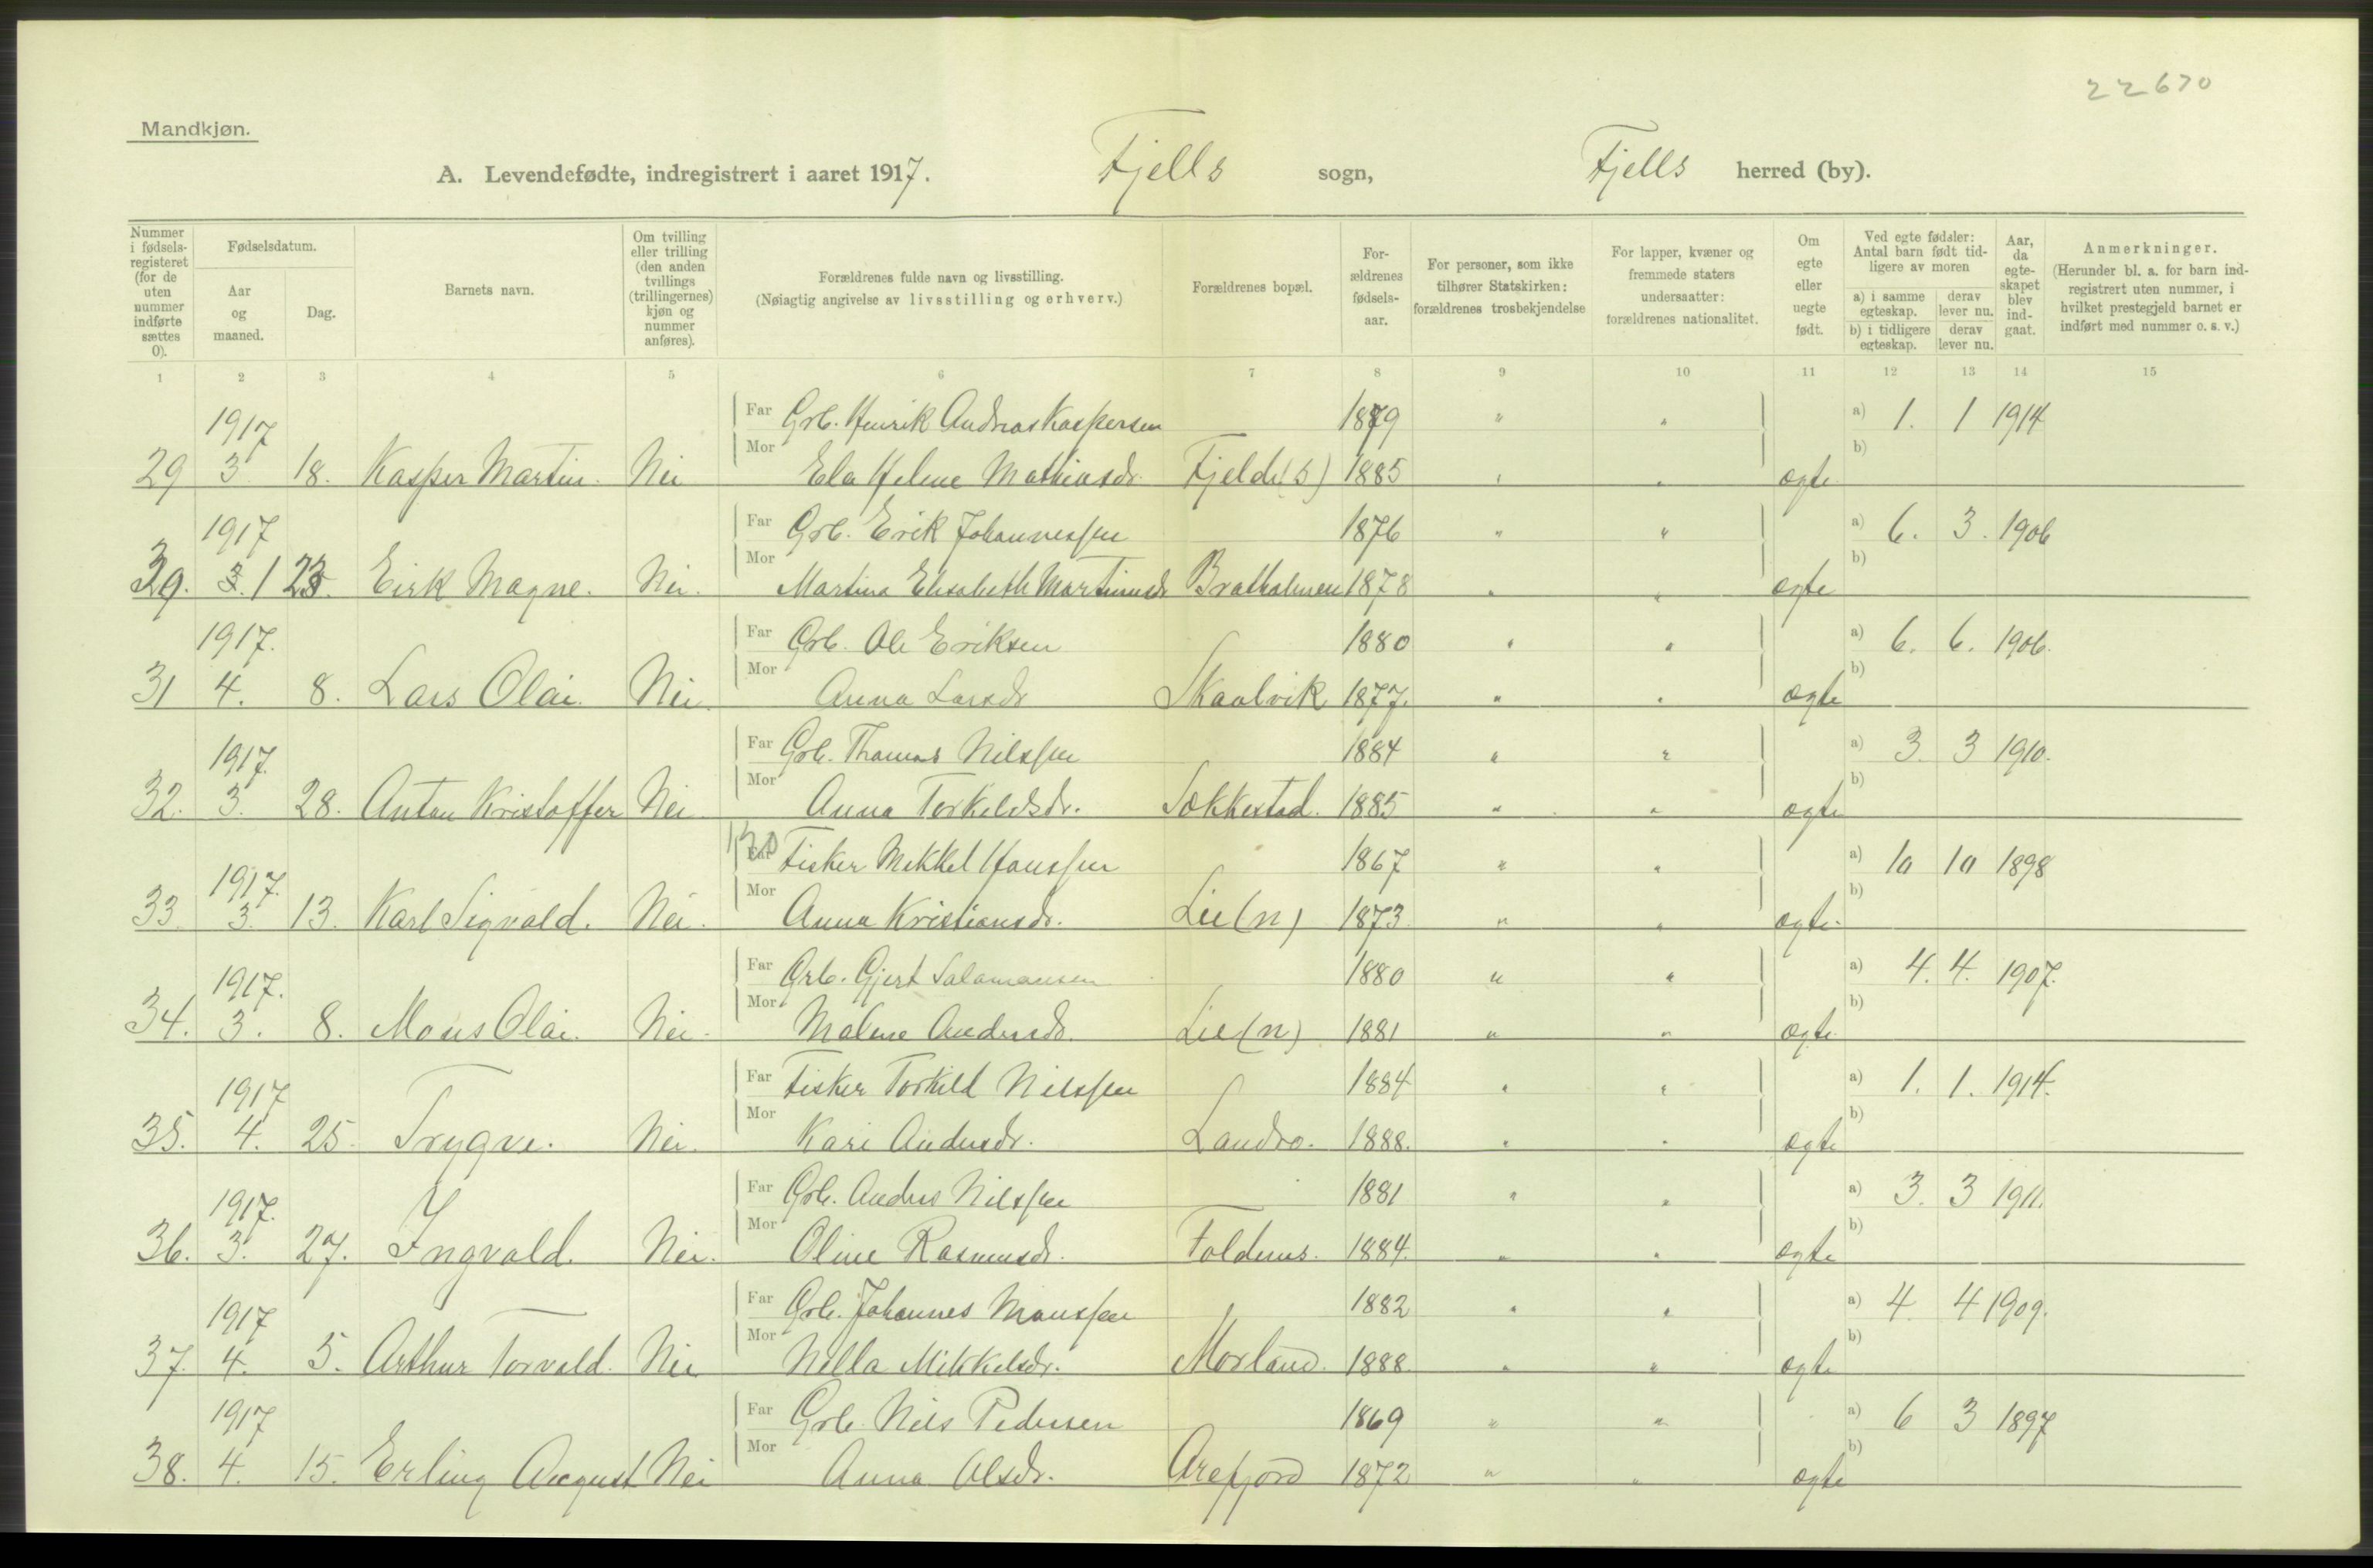 22670
Mandkjøn.
A. Levendefødte, indregistrert i aaret 1917. Fjells sogn, Fjells herred (by).
Nummer i fødsels-registeret (for de uten nummer indførte sættes 0).
Fødselsdatum.
Aar og maaned.
Dag.
Barnets navn.
Om tvilling eller trilling (den anden tvillings (trillingernes) kjøn og nummer anføres).
Forældrenes fulde navn og livsstilling.
(Nøiagtig angivelse av livsstilling og erhverv.)
Forældrenes bopæl.
For-ældrenes fødsels-aar.
For personer, som ikke tilhører Statskirken: forældrenes trosbekjendelse
For lapper, kvæner og fremmede staters undersaatter: forældrenes nationalitet.
Om egte eller uegte født.
Ved egte fødsler: Antal barn født tid-ligere av moren
a) i samme egteskap. derav lever nu.
b) i tidligere egteskap. derav lever nu.
Aar, da egte-skapet blev ind-gaat.
Anmerkninger.
(Herunder bl. a. for barn ind-registrert uten nummer, i hvilket prestegjeld barnet er indført med nummer o. s. v.)
1 2 3 4 5 6 7 8 9 10 11 12 13 14 15
1917 Far Grb. Henrik Andreas Kaspersen 1879 " " a) 1. 1 1914
29 3 18. Kasper Martin. Nei Mor Ela Helene Mathiasdr. Fjelde (s) 1885 " " ægte b)
1917 Far Grb. Erik Johannessen 1876 " " a) 6. 3. 1906
39. 3. 1 23. Eirk Magne. Nei. Mor Martina Elisabeth Martinusdr Bratholmen 1878 " " ægte b)
1917. Far Grb. Ole Eriksen 1880 " " a) 6. 6. 1906.
31 4. 8. Lars Olai. Nei. Mor Anna Larsdr Skaalvik 1877. " " ægte b)
1917. Far Grb. Thomas Nilssen 1884 " " a) 3. 3 1910.
32. 3. 28. Anton Kristoffer Nei Mor Anna Torkildsdr. Sekkestad. 1885 " " ægte b)
1917. Far Fisker Mikkel Hanssen 1867 " " a) 10 10 1898
33. 3. 13. Karl Sigvald. Nei. Mor Anna Kristiansdr. Lie (n) 1873 " " ægte. b)
1917. Far Grb. Gjert Salamonsen 1880 " " a) 4. 4. 1907.
34. 3. 8. Mons Olai. Nei. Mor Malene Andersdr. Lie (n) 1881 " " ægte. b)
1917 Far Fisker Torkild Nilssen 1884 " " a) 1. 1. 1914.
35. 4. 25. Trygve. Nei. Mor Kari Andersdr. Landro. 1888. " " ægte b)
1917. Far Grb. Anders Nilssen 1881 " " a) 3. 3 1911.
36. 3. 27. Ingvald. Nei. Mor Oline Rasmusdr. Foldnes. 1884. " " ægte b)
1917 Far Grb. Johannes Monssen 1882 " " a) 4. 4 1909.
37. 4. 5. Arthur Torvald. Nei Mor Nilla Mikkelsdr. Morland. 1888. " " ægte b)
1917 Far Grb. Nils Pedersen 1869 " " a) 6 3 1897
38. 4. 15. Erling August Nei Mor Anna Olsdr. Arefjord 1872 " " ægte b)